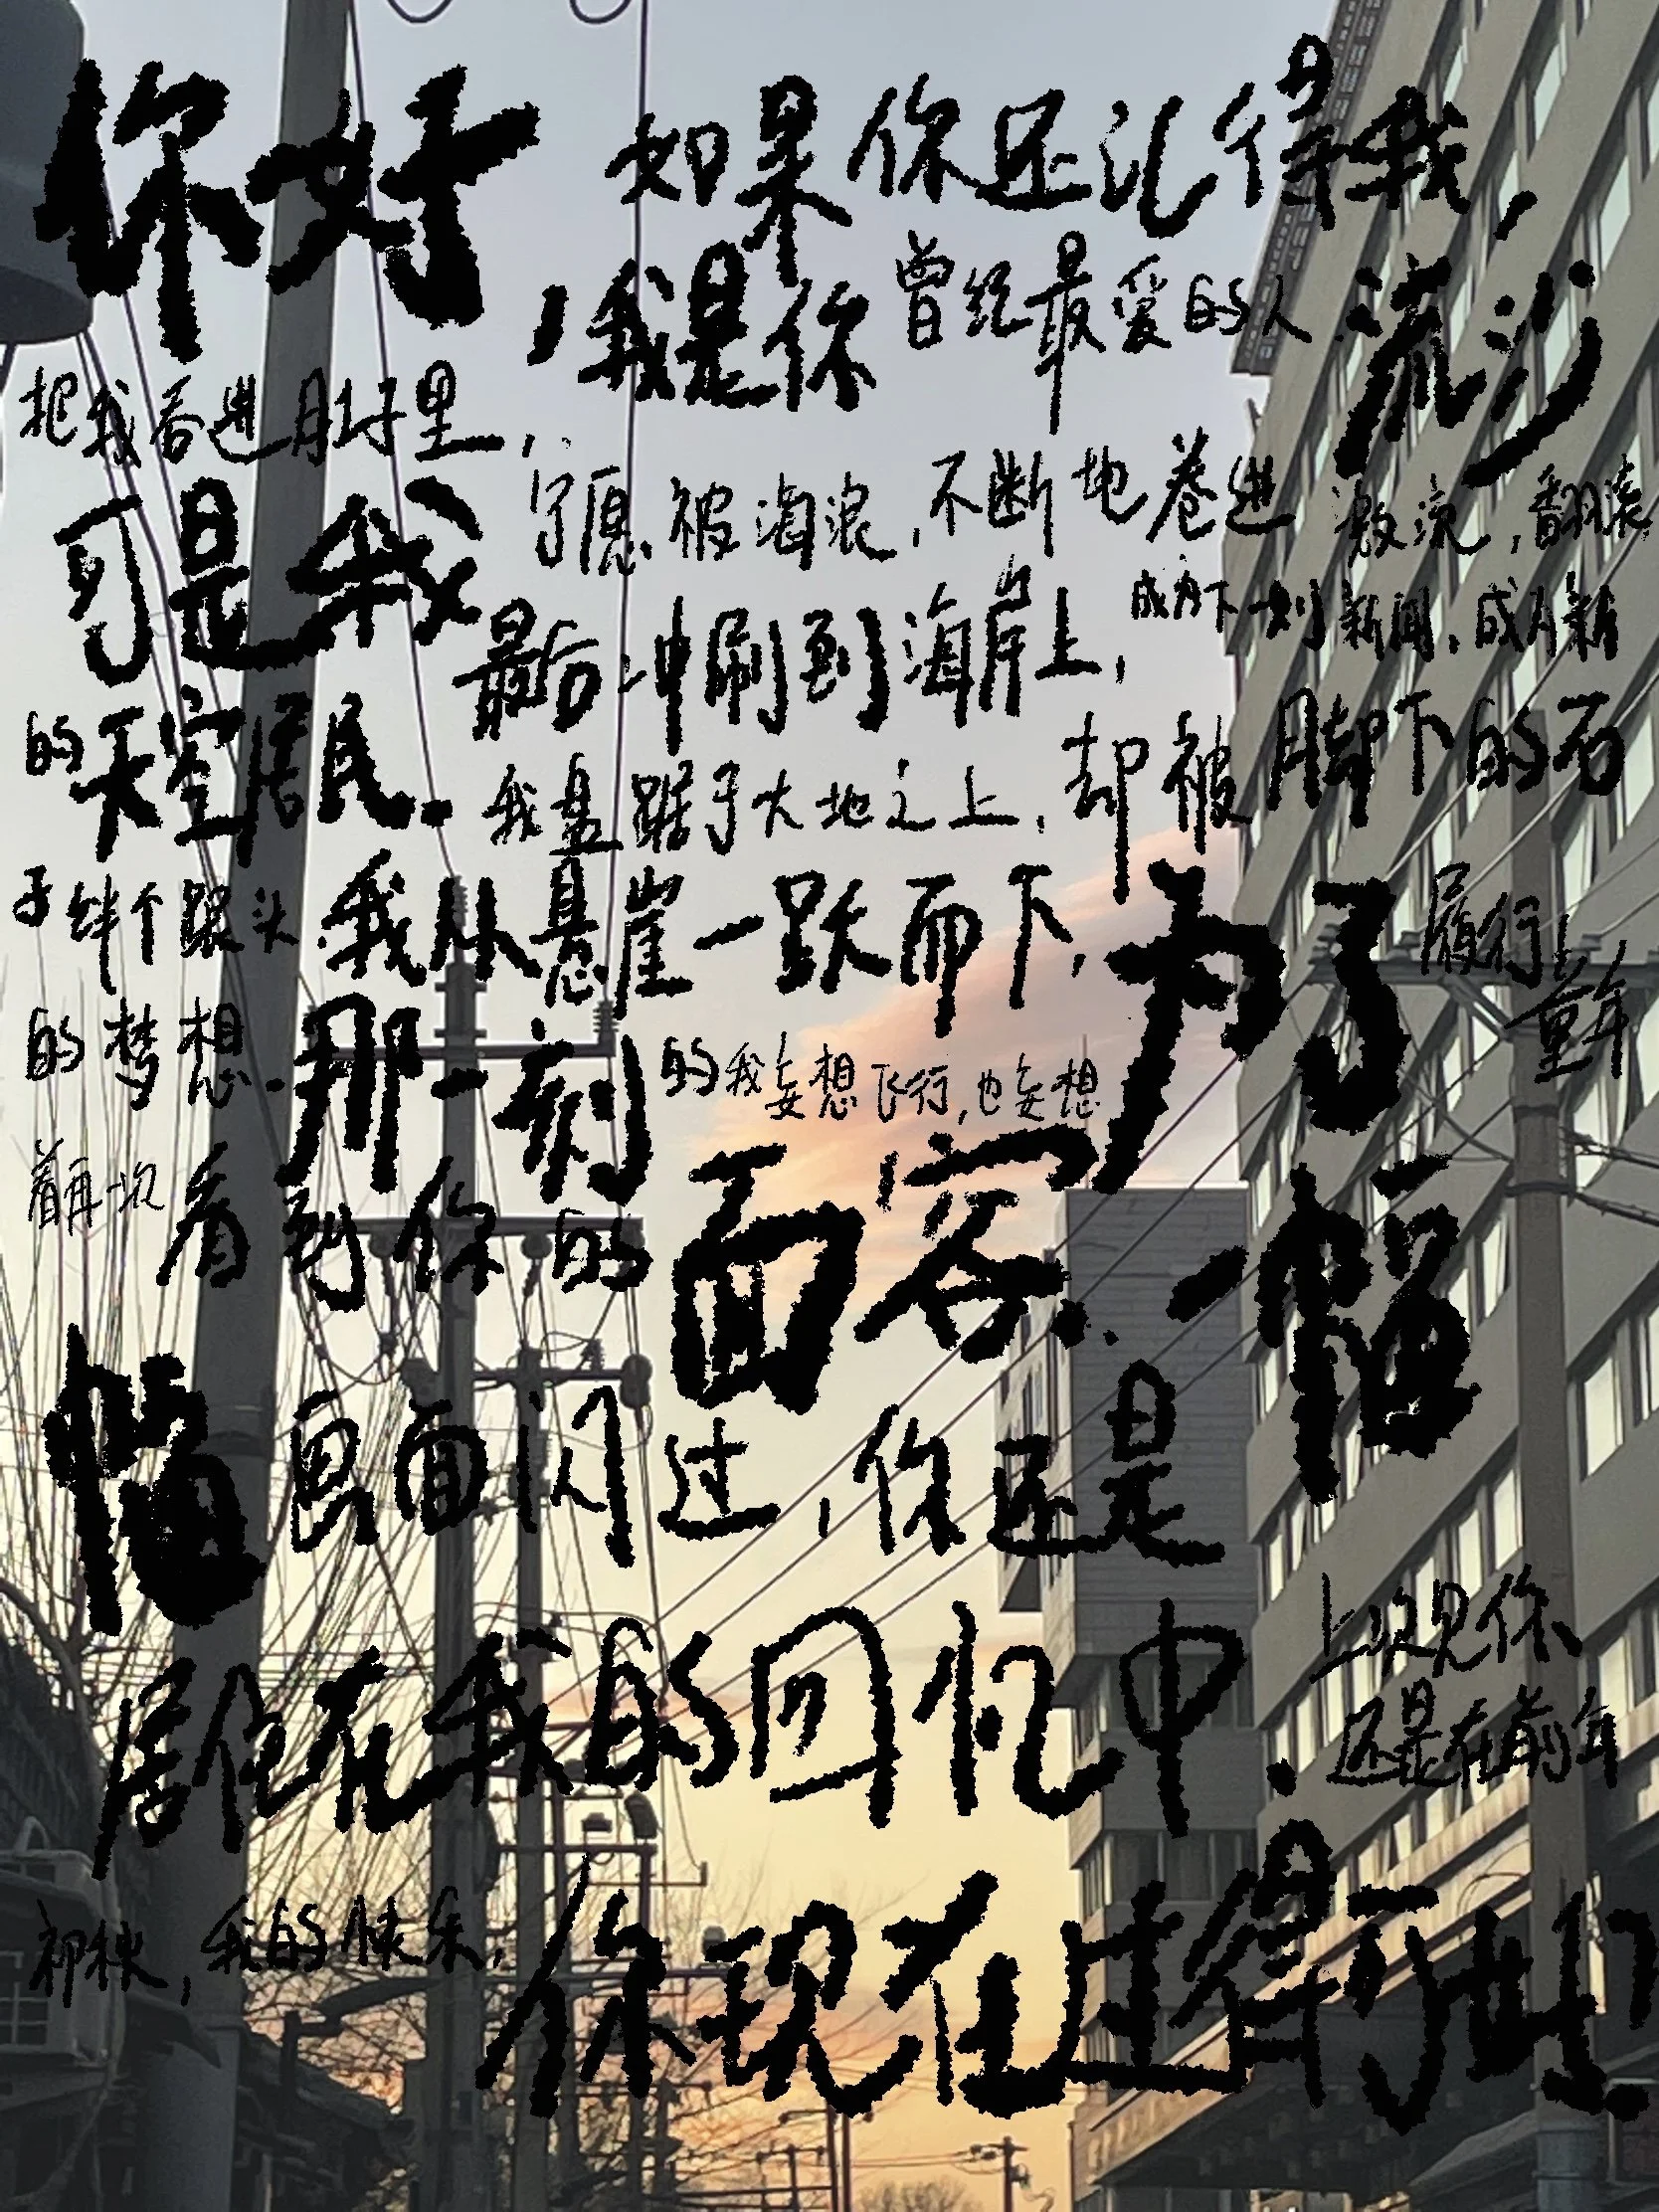 你好，如果你还记得我，
，我是你曾经最爱的人.流沙
把我吞进肚子里，.
可是我宁愿被海浪,不断地卷进激流,翻滚
最后冲刷到海岸上,成为下一则新闻,成为新
的天空居民.我盘踞于大地之上,却被脚下的石
子绊个跟头.我从悬崖一跃而下,为了履行上
的梦想.那一刻的我妄想飞行,也妄想
着再一次看到你的面容..一幅
幅画面闪过,你还是
居住在我的回忆中.上次见你、
还是在前年
初秋,我的快乐,你现在过得可好